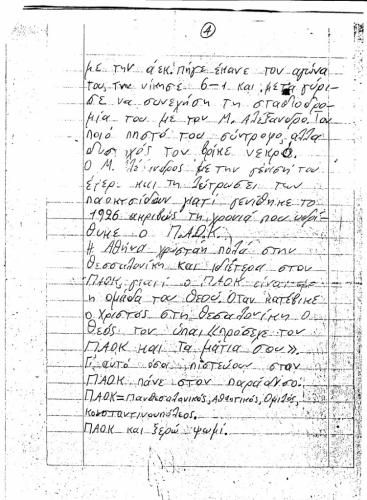 4
με την άεκ. Πήγε έκανε τον αγώνα
του, την νίκησε 6-1 και μετα γύρι-
σε να συνεχήση τη σταδιοδρο-
μία του με τον Μ. Αλέξανδρο. Τον
ποιό πηστό του σύντροφο, αλλα
δυστιχός τον βρίκε νεκρό.
Ο Μ. Αλέξανδρος με την γέννησή του
έφερε και τη λύτρωσει των
παοκτσίδων γιατί γενίθηκε το
1926 ακριβώς τη χρονιά που ιδρί-
θηκε ο Π.Α.Ο.Κ.
Η Αθήνα χρωστάη πολά στην
Θεσσαλονίκη και ιδιέτερα στον
ΠΑΟΚ, γιατί ο ΠΑΟΚ είναι
η ομάδα του Θεού. Όταν κατέβηκε
ο Χριστός στη Θεσαλονίκη ο
Θεός του είπαι «Πρόσεχε τον
ΠΑΟΚ και τα μάτια σου».
Γι' αυτό όσοι πιστεύουν στον
ΠΑΟΚ πάνε στον παράδεισο.
ΠΑΟΚ = Πανθεσαλονικός, Αθλητικός, Ομιλός,
Κωνσταντινουπόλεος.
ΠΑΟΚ και ξερό ψωμί.